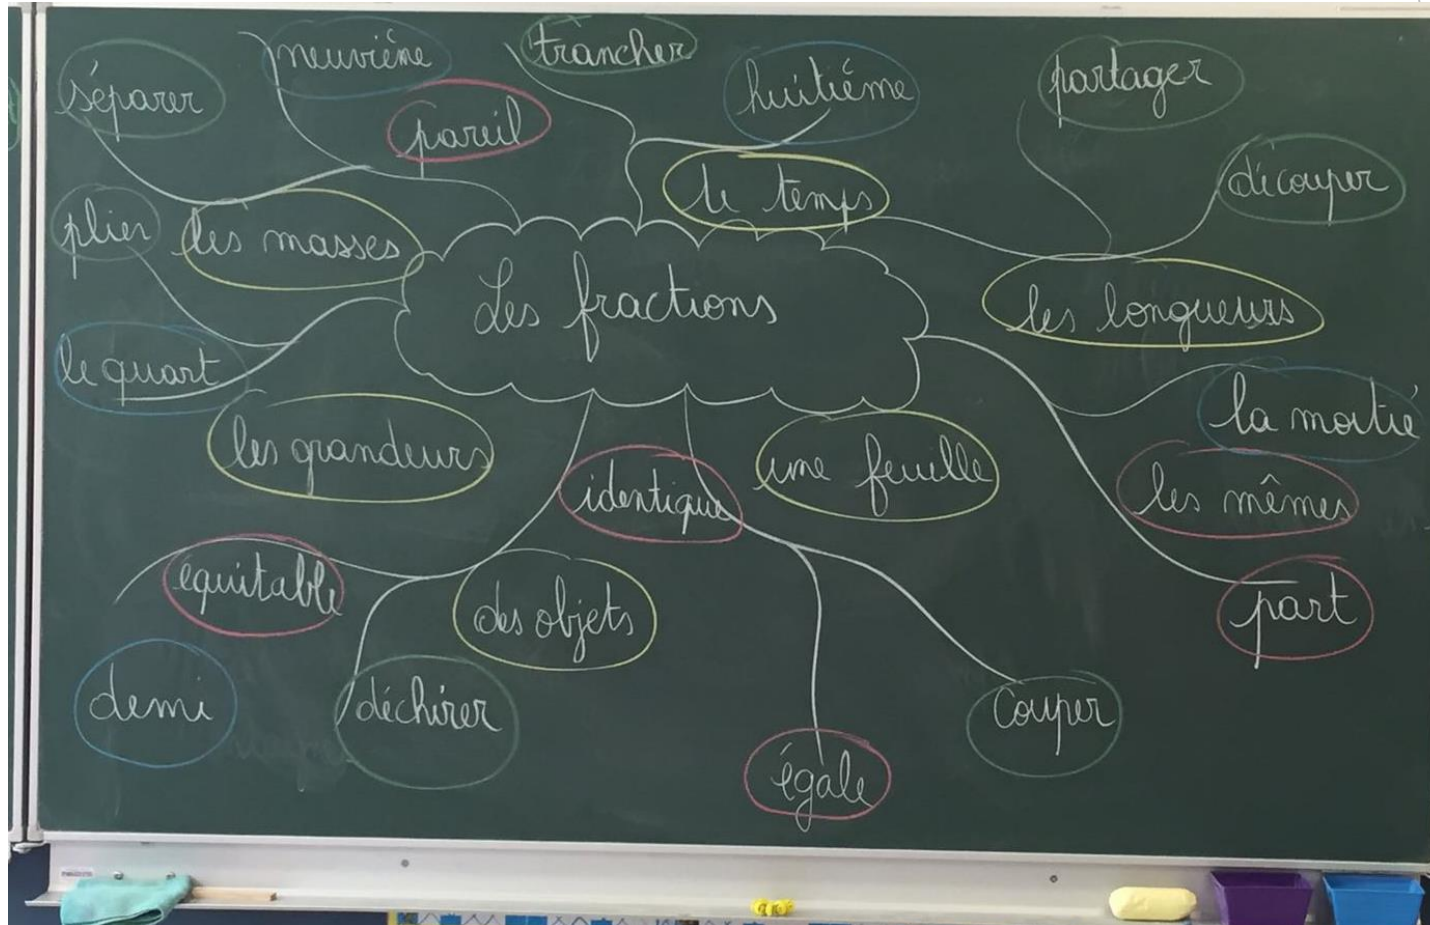 neuvième
trancher
séparer
pareil
huitième
partager
découper
plier
les masses
le temps
Les fractions
les longueurs
le quart
la moitié
les grandeurs
identique
une feuille
les mêmes
équitable
des objets
part
demi
déchirer
couper
égale